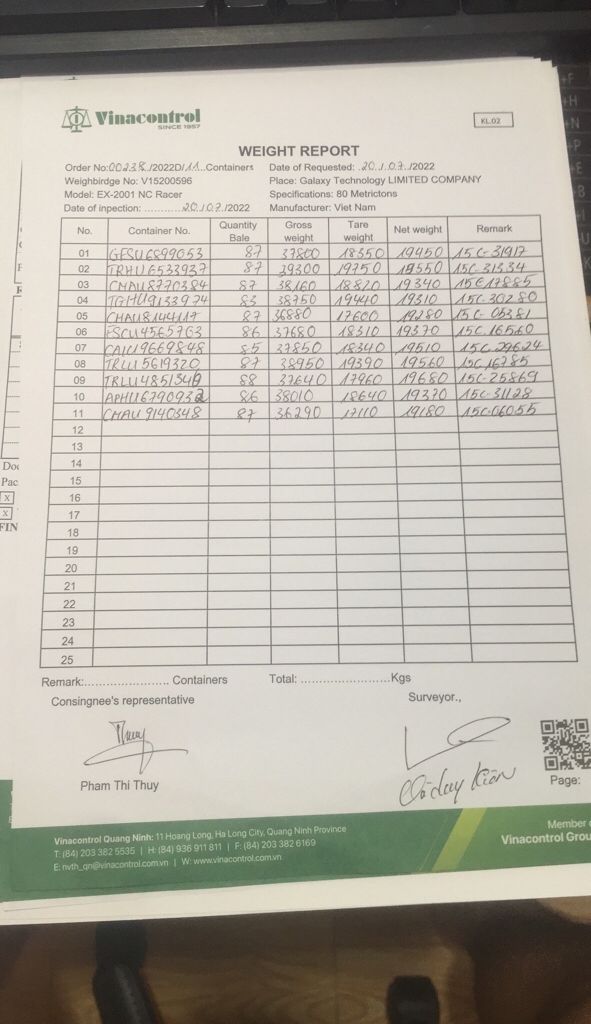 Vinacontrol
SINCE 1957
KL.02
WEIGHT REPORT
Order No:00238./2022D/11..Containers Date of Requested: .20.1.07./2022
Weighbirdge No: V15200596 Place: Galaxy Technology LIMITED COMPANY
Model: EX-2001 NC Racer Specifications: 80 Metrictons
Date of inpection: ............20.1.07./2022 Manufacturer: Viet Nam
No. Container No. Quantity Bale Gross weight Tare weight Net weight Remark
01 GESU6899053 87 37800 18350 19450 15C-31917
02 TRHU6533937 87 39300 19750 19550 15C-31334
03 CMAU8770384 87 38160 18820 19340 15C17885
04 TGHU9133974 83 38750 19440 19310 15C-30280
05 CMAU8144117 87 36880 17600 19280 15C-05381
06 FSCU4565763 86 37680 18310 19370 15C-16560
07 CAIU9669848 85 37850 18340 19510 15C-29624
08 TRLU5619320 87 38950 19390 19560 15C16785
09 TRLU4851346 88 37640 17960 19680 15C-25869
10 APHU6790932 86 38010 18640 19370 15C-31128
11 CMAU9140348 87 36290 17110 19180 15C-06055
12
13
14
15
16
17
18
19
20
21
22
23
24
25
Remark:........................ Containers Total: .........................Kgs
Consingnee's representative Surveyor.,
Pham Thi Thuy
Page:
Vinacontrol Quang Ninh: 11 Hoang Long, Ha Long City, Quang Ninh Province
T: (84) 203 382 5535 | H: (84) 936 911 811 | F: (84) 203 382 6169
E: nvth_qn@vinacontrol.com.vn | W: www.vinacontrol.com.vn
Member
Vinacontrol Grou
Doc
Pac
X
X
FIN
+F
+H
+N
+P
+E
+B